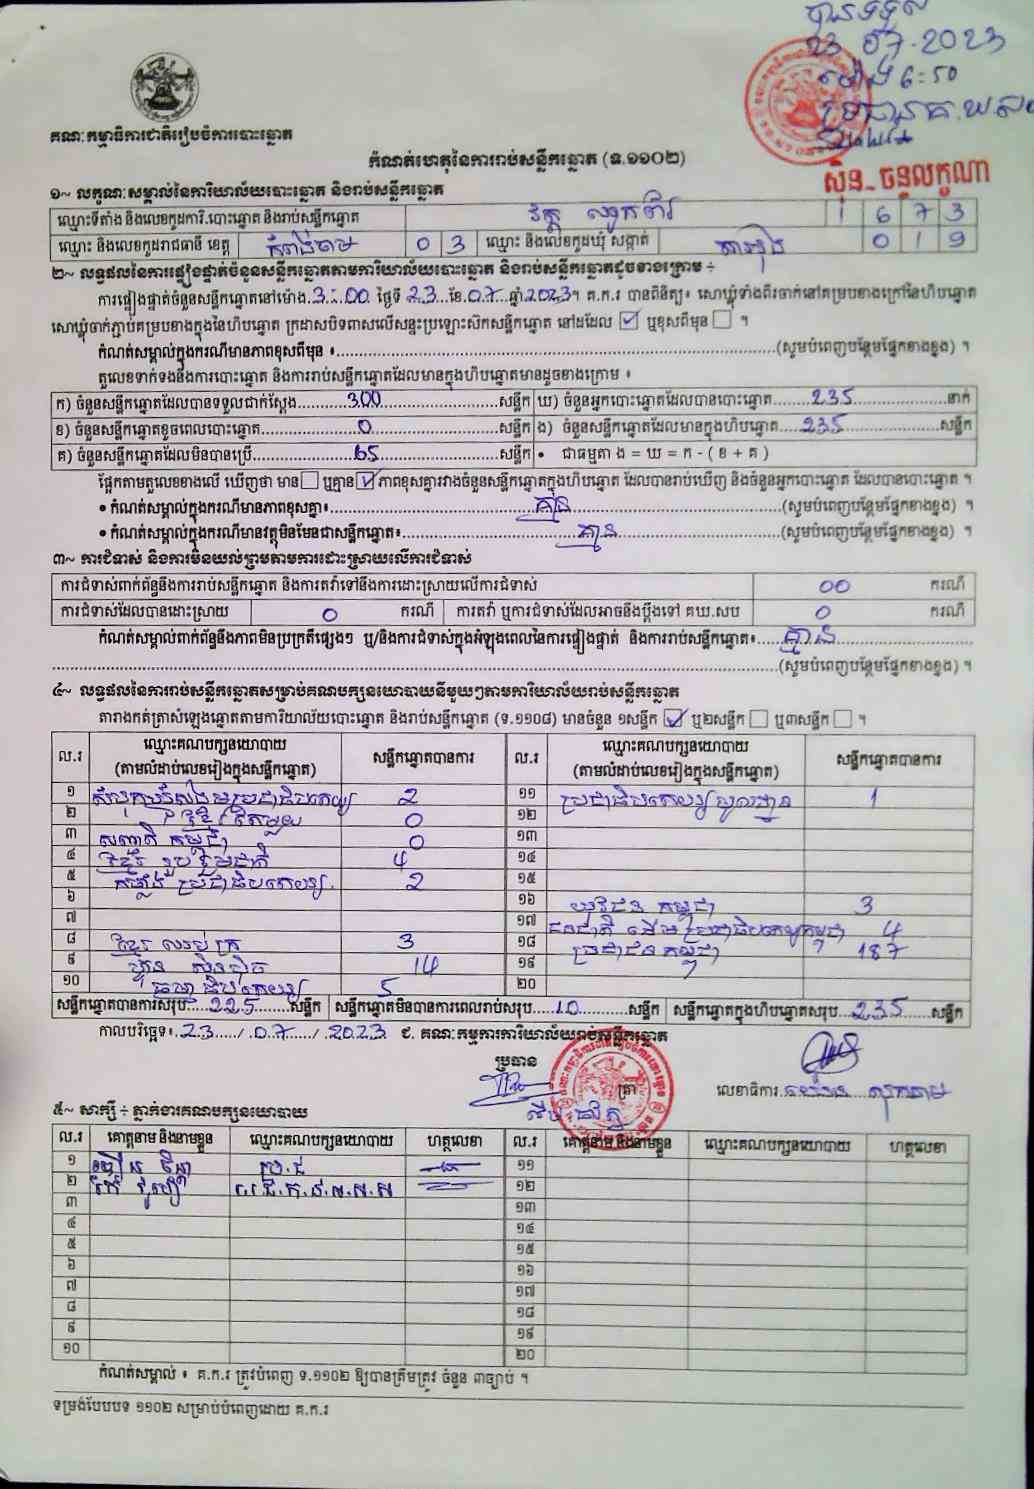 បានទទួល
23 07-2023
ម៉ោង 6:50
ស៊ិន-ចន្ទលក្ខណា
គណៈកម្មាធិការជាតិរៀបចំការបោះឆ្នោត
កំណត់ហេតុនៃការរាប់សន្លឹកឆ្នោត (ទ.១១០២)
១~ លក្ខណៈសម្គាល់នៃការិយាល័យបោះឆ្នោត និងរាប់សន្លឹកឆ្នោត
ឈ្មោះទីតាំង និងលេខកូដការិ.បោះឆ្នោត និងរាប់សន្លឹកឆ្នោត វត្ត 1 6 7 3
ឈ្មោះ និងលេខកូដរាជធានី ខេត្ត កំពង់ចាម 0 3 ឈ្មោះ និងលេខកូដឃុំ សង្កាត់ 0 1 9
២~ លទ្ធផលនៃការផ្ទៀងផ្ទាត់ចំនួនសន្លឹកឆ្នោតតាមការិយាល័យបោះឆ្នោត និងរាប់សន្លឹកឆ្នោតដូចខាងក្រោម ÷
ការផ្ទៀងផ្ទាត់ចំនួនសន្លឹកឆ្នោតនៅម៉ោង.3:00 ថ្ងៃទី 23 ខែ.07 ឆ្នាំ.2023។ គ.ក.រ បានពិនិត្យ៖ សោឃ្លុំទាំងពីរចាក់នៅគម្របខាងក្រៅនៃហិបឆ្នោត
សោឃ្លុំចាក់ភ្ជាប់គម្របខាងក្នុងនៃហិបឆ្នោត ក្រដាសបិទពាសលើសន្ទះប្រឡោះស៊កសន្លឹកឆ្នោត នៅដដែល ☑ ឬខុសពីមុន ☐ ។
កំណត់សម្គាល់ក្នុងករណីមានភាពខុសពីមុន ៖ (សូមបំពេញបន្ថែមផ្នែកខាងខ្នង) ។
តួលេខទាក់ទងនឹងការបោះឆ្នោត និងការរាប់សន្លឹកឆ្នោតដែលមានក្នុងហិបឆ្នោតមានដូចខាងក្រោម ៖
ក) ចំនួនសន្លឹកឆ្នោតដែលបានទទួលជាក់ស្តែង 300 សន្លឹក ឃ) ចំនួនអ្នកបោះឆ្នោតដែលបានបោះឆ្នោត 235 នាក់
ខ) ចំនួនសន្លឹកឆ្នោតខូចពេលបោះឆ្នោត 0 សន្លឹក ង) ចំនួនសន្លឹកឆ្នោតដែលមានក្នុងហិបឆ្នោត 235 សន្លឹក
គ) ចំនួនសន្លឹកឆ្នោតដែលមិនបានប្រើ 65 សន្លឹក • ជាធម្មតា ង = ឃ = ក - ( ខ + គ )
ផ្អែកតាមតួលេខខាងលើ ឃើញថា មាន ☐ ឬគ្មាន ☑ ភាពខុសគ្នារវាងចំនួនសន្លឹកឆ្នោតក្នុងហិបឆ្នោត ដែលបានរាប់ឃើញ និងចំនួនអ្នកបោះឆ្នោត ដែលបានបោះឆ្នោត ។
• កំណត់សម្គាល់ក្នុងករណីមានភាពខុសគ្នា៖ គ្មាន (សូមបំពេញបន្ថែមផ្នែកខាងខ្នង) ។
• កំណត់សម្គាល់ក្នុងករណីមានវត្ថុមិនមែនជាសន្លឹកឆ្នោត៖ គ្មាន (សូមបំពេញបន្ថែមផ្នែកខាងខ្នង) ។
៣~ ការជំទាស់ និងការមិនយល់ព្រមតាមការដោះស្រាយលើការជំទាស់
ការជំទាស់ពាក់ព័ន្ធនឹងការរាប់សន្លឹកឆ្នោត និងការតវ៉ាទៅនឹងការដោះស្រាយលើការជំទាស់ 00 ករណី
ការជំទាស់ដែលបានដោះស្រាយ 0 ករណី ការតវ៉ា ឬការជំទាស់ដែលអាចនឹងប្តឹងទៅ គឃ.សប 0 ករណី
កំណត់សម្គាល់ពាក់ព័ន្ធនឹងភាពមិនប្រក្រតីផ្សេងៗ ឬ/និងការជំទាស់ក្នុងអំឡុងពេលនៃការផ្ទៀងផ្ទាត់ និងការរាប់សន្លឹកឆ្នោត៖ គ្មាន
(សូមបំពេញបន្ថែមផ្នែកខាងខ្នង) ។
៤~ លទ្ធផលនៃការរាប់សន្លឹកឆ្នោតសម្រាប់គណបក្សនយោបាយនីមួយៗតាមការិយាល័យរាប់សន្លឹកឆ្នោត
តារាងកត់ត្រាសំឡេងឆ្នោតតាមការិយាល័យបោះឆ្នោត និងរាប់សន្លឹកឆ្នោត (ទ.១១០៨) មានចំនួន ១សន្លឹក ☑ ឬ២សន្លឹក ☐ ឬ៣សន្លឹក ☐ ។
ល.រ ឈ្មោះគណបក្សនយោបាយ (តាមលំដាប់លេខរៀងក្នុងសន្លឹកឆ្នោត) សន្លឹកឆ្នោតបានការ ល.រ ឈ្មោះគណបក្សនយោបាយ (តាមលំដាប់លេខរៀងក្នុងសន្លឹកឆ្នោត) សន្លឹកឆ្នោតបានការ
១ សំបុកឃ្មុំសង្គមប្រជាធិបតេយ្យ 2 ១១ ប្រជាធិបតេយ្យមូលដ្ឋាន 1
២ ខ្មែរតែមួយ 0 ១២
៣ សញ្ជាតិ កម្ពុជា 0 ១៣
៤ ខ្មែរ រួបរួមជាតិ 4 ១៤
៥ កម្លាំង ប្រជាធិបតេយ្យ 2 ១៥
៦ ១៦ យុវជន កម្ពុជា 3
៧ ១៧ ជនជាតិ ដើម ប្រជាធិបតេយ្យកម្ពុជា 4
៨ ខ្មែរ ឈប់ ក្រ 3 ១៨ ប្រជាជន កម្ពុជា 187
៩ ហ្វ៊ុន ស៊ិនប៉ិច 14 ១៩
១០ ធម្មាធិបតេយ្យ 5 ២០
សន្លឹកឆ្នោតបានការសរុប 225 សន្លឹក សន្លឹកឆ្នោតមិនបានការពេលរាប់សរុប 10 សន្លឹក សន្លឹកឆ្នោតក្នុងហិបឆ្នោតសរុប 235 សន្លឹក
កាលបរិច្ឆេទ៖ 23 / 07 / 2023 ជ. គណៈកម្មការការិយាល័យរាប់សន្លឹកឆ្នោត
ប្រធាន ត្រា លេខាធិការ
៥~ សាក្សី ÷ ភ្នាក់ងារគណបក្សនយោបាយ
ល.រ គោត្តនាម និងនាមខ្លួន ឈ្មោះគណបក្សនយោបាយ ហត្ថលេខា ល.រ គោត្តនាម និងនាមខ្លួន ឈ្មោះគណបក្សនយោបាយ ហត្ថលេខា
១ ប្រ.ជ ១១
២ ១២
៣ ១៣
៤ ១៤
៥ ១៥
៦ ១៦
៧ ១៧
៨ ១៨
៩ ១៩
១០ ២០
កំណត់សម្គាល់ ៖ គ.ក.រ ត្រូវបំពេញ ទ.១១០២ ឱ្យបានត្រឹមត្រូវ ចំនួន ៣ច្បាប់ ។
ទម្រង់បែបបទ ១១០២ សម្រាប់បំពេញដោយ គ.ក.រ